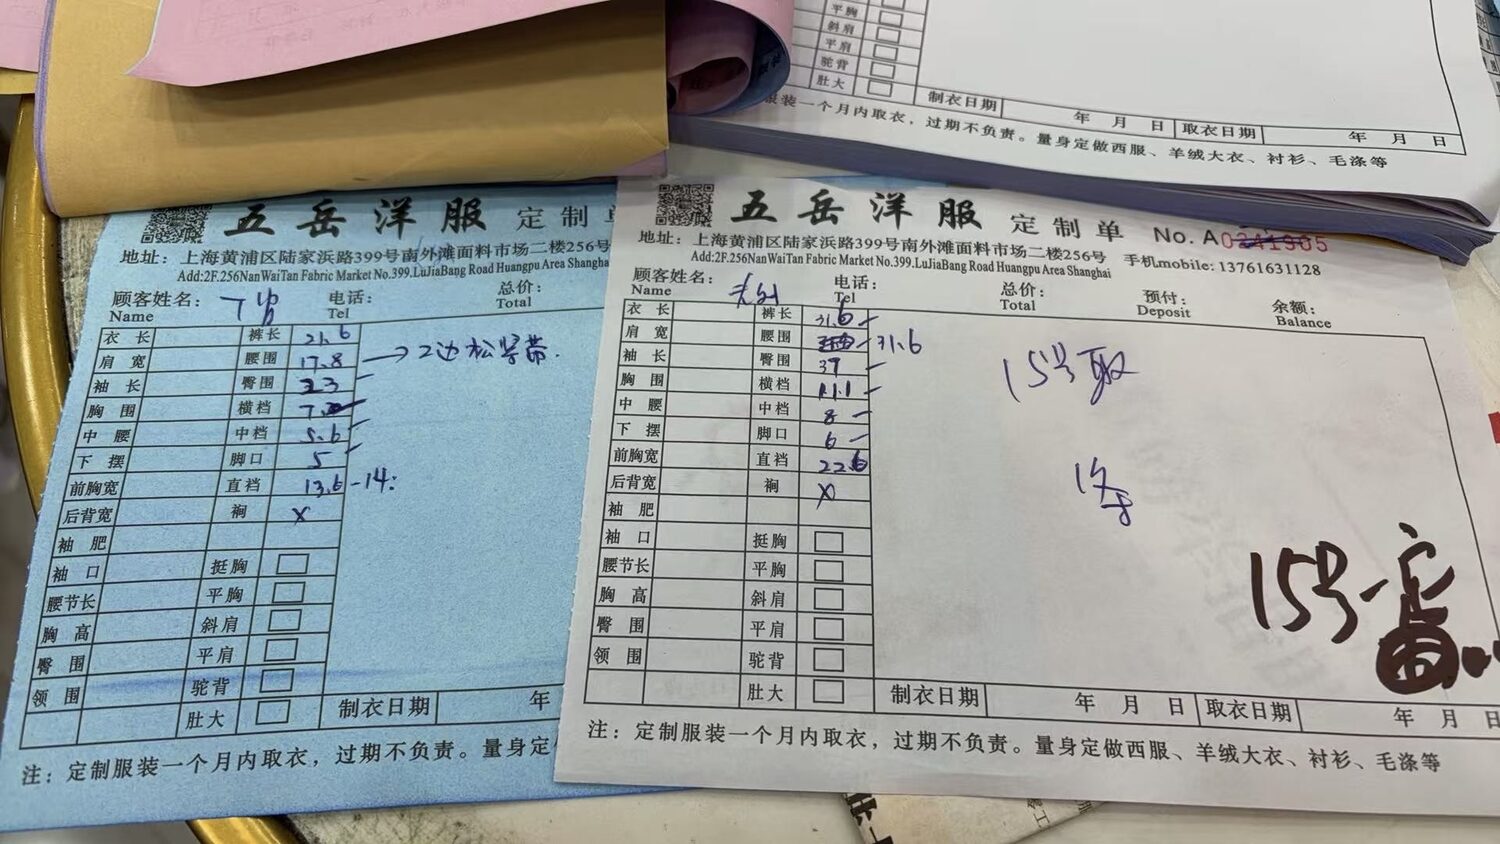 平胸
斜肩
平肩
驼背
肚大
制衣日期 年 月 日 取衣日期 年 月 日
服装一个月内取衣，过期不负责。量身定做西服、羊绒大衣、衬衫、毛涤等
五岳洋服 定制单
地址：上海黄浦区陆家浜路399号南外滩面料市场二楼256号
Add:2F.256NanWaiTan Fabric Market No.399.LuJiaBang Road Huangpu Area Shangha
顾客姓名： 电话： 总价：
Name Tel Total
衣长 裤长 21.6
肩宽 腰围 17.8 → 2边松紧带.
袖长 臀围 23
胸围 横档
中腰 中档 5.6
下摆 脚口 5
前胸宽 直裆 13.6-14:
后背宽 裥 x
袖肥
袖口 挺胸
腰节长 平胸
胸高 斜肩
臀围 平肩
领围 驼背
肚大
制衣日期 年
注：定制服装一个月内取衣，过期不负责。量身定
五岳洋服 定制单 No. A0241905
地址：上海黄浦区陆家浜路399号南外滩面料市场二楼256号
Add:2F.256NanWaiTan Fabric Market No.399.LuJiaBang Road Huangpu Area Shanghai 手机mobile: 13761631128
顾客姓名： 电话： 总价： 预付： 余额：
Name Tel Total Deposit Balance
衣长 裤长 31.6
肩宽 腰围 31.6
袖长 臀围 37
胸围 横档 11.1
中腰 中档 8
下摆 脚口 6
前胸宽 直裆 22.6
后背宽 裥 x
袖肥
袖口 挺胸
腰节长 平胸
胸高 斜肩
臀围 平肩
领围 驼背
肚大
15号取
15号一定
制衣日期 年 月 日 取衣日期 年 月 日
注：定制服装一个月内取衣，过期不负责。量身定做西服、羊绒大衣、衬衫、毛涤等